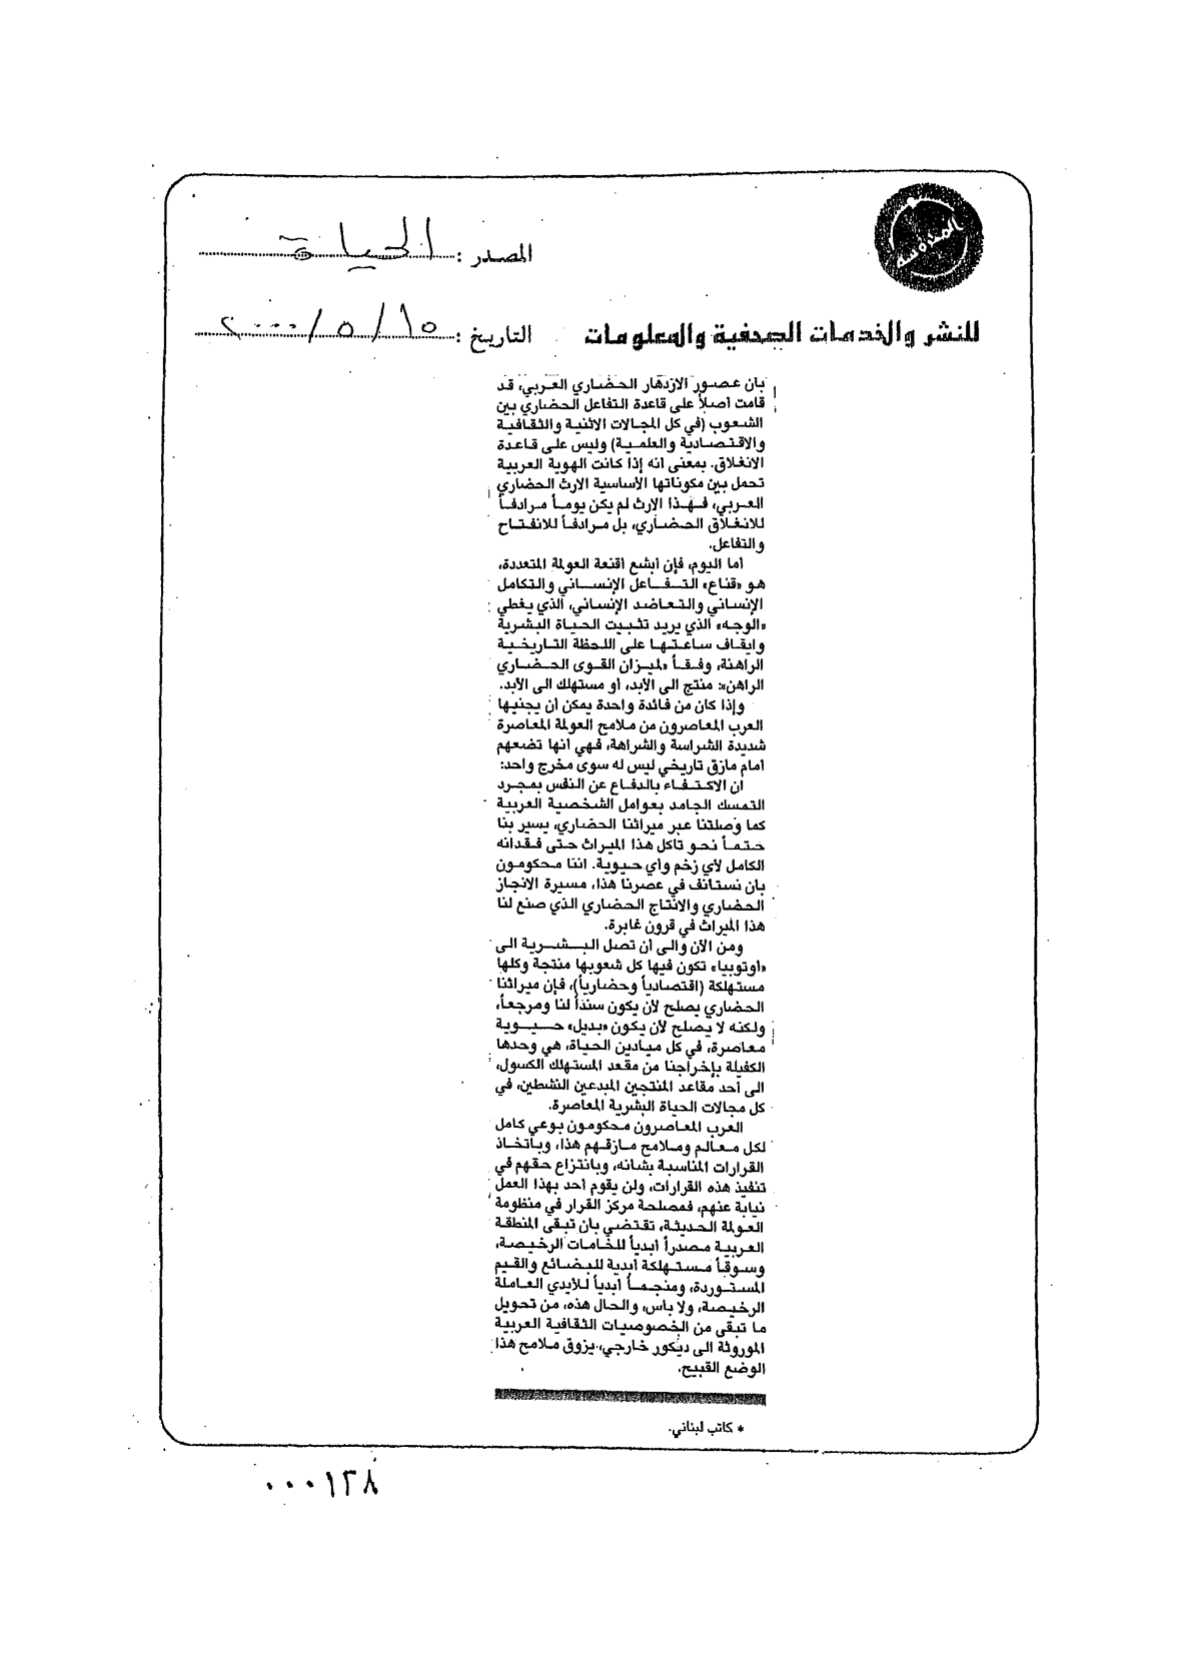 المصدر : الحياة
للنشر والخدمات الصحفية والمعلومات
التاريخ : ١٥ / ٥ / ٢٠٠٠
بأن عصور الازدهار الحضاري العربي، قد
قامت أصلاً على قاعدة التفاعل الحضاري بين
الشعوب (في كل المجالات الاثنية والثقافية
والاقتصادية والعلمية) وليس على قاعدة
الانغلاق. بمعنى انه إذا كانت الهوية العربية
تحمل بين مكوناتها الأساسية الارث الحضاري
العربي، فهذا الارث لم يكن يوماً مرادفاً
للانغلاق الحضاري، بل مرادفاً للانفتاح
والتفاعل.
أما اليوم، فإن أبشع أقنعة العولمة المتعددة،
هو «قناع» التفاعل الإنساني والتكامل
الإنساني والتعاضد الإنساني، الذي يغطي
«الوجه» الذي يريد تثبيت الحياة البشرية
وايقاف ساعتها على اللحظة التاريخية
الراهنة، وفقاً «لميزان القوى الحضاري
الراهن»: منتج الى الأبد، أو مستهلك الى الأبد.
وإذا كان من فائدة واحدة يمكن أن يجنيها
العرب المعاصرون من ملامح العولمة المعاصرة
شديدة الشراسة والشراهة، فهي انها تضعهم
امام مازق تاريخي ليس له سوى مخرج واحد:
ان الاكتفاء بالدفاع عن النفس بمجرد
التمسك الجامد بعوامل الشخصية العربية
كما وصلتنا عبر ميراثنا الحضاري، يسير بنا
حتماً نحو تاكل هذا الميراث حتى فقدانه
الكامل لأي زخم وأي حيوية. اننا محكومون
بان نستانف في عصرنا هذا، مسيرة الانجاز
الحضاري والانتاج الحضاري الذي صنع لنا
هذا الميراث في قرون غابرة.
ومن الآن والى أن تصل البشرية الى
«أوتوبيا» تكون فيها كل شعوبها منتجة وكلها
مستهلكة (اقتصادياً وحضارياً)، فإن ميراثنا
الحضاري يصلح لأن يكون سنداً لنا ومرجعاً،
ولكنه لا يصلح لأن يكون «بديل» حيوية
معاصرة، في كل ميادين الحياة، هي وحدها
الكفيلة بإخراجنا من مقعد المستهلك الكسول،
الى أحد مقاعد المنتجين المبدعين النشطين، في
كل مجالات الحياة البشرية المعاصرة.
العرب المعاصرون محكومون بوعي كامل
لكل معالم وملامح مازقهم هذا، وباتخاذ
القرارات المناسبة بشانه، وبانتزاع حقهم في
تنفيذ هذه القرارات، ولن يقوم أحد بهذا العمل
نيابة عنهم، فمصلحة مركز القرار في منظومة
العولمة الحديثة، تقتضي بان تبقى المنطقة
العربية مصدراً أبدياً للخامات الرخيصة،
وسوقاً مستهلكة أبدية للبضائع والقيم
المستوردة، ومنجماً أبدياً للأيدي العاملة
الرخيصة، ولا باس، والحال هذه، من تحويل
ما تبقى من الخصوصيات الثقافية العربية
الموروثة الى ديكور خارجي، يزوق ملامح هذا
الوضع القبيح.
* كاتب لبناني.
٠٠٠١٣٨